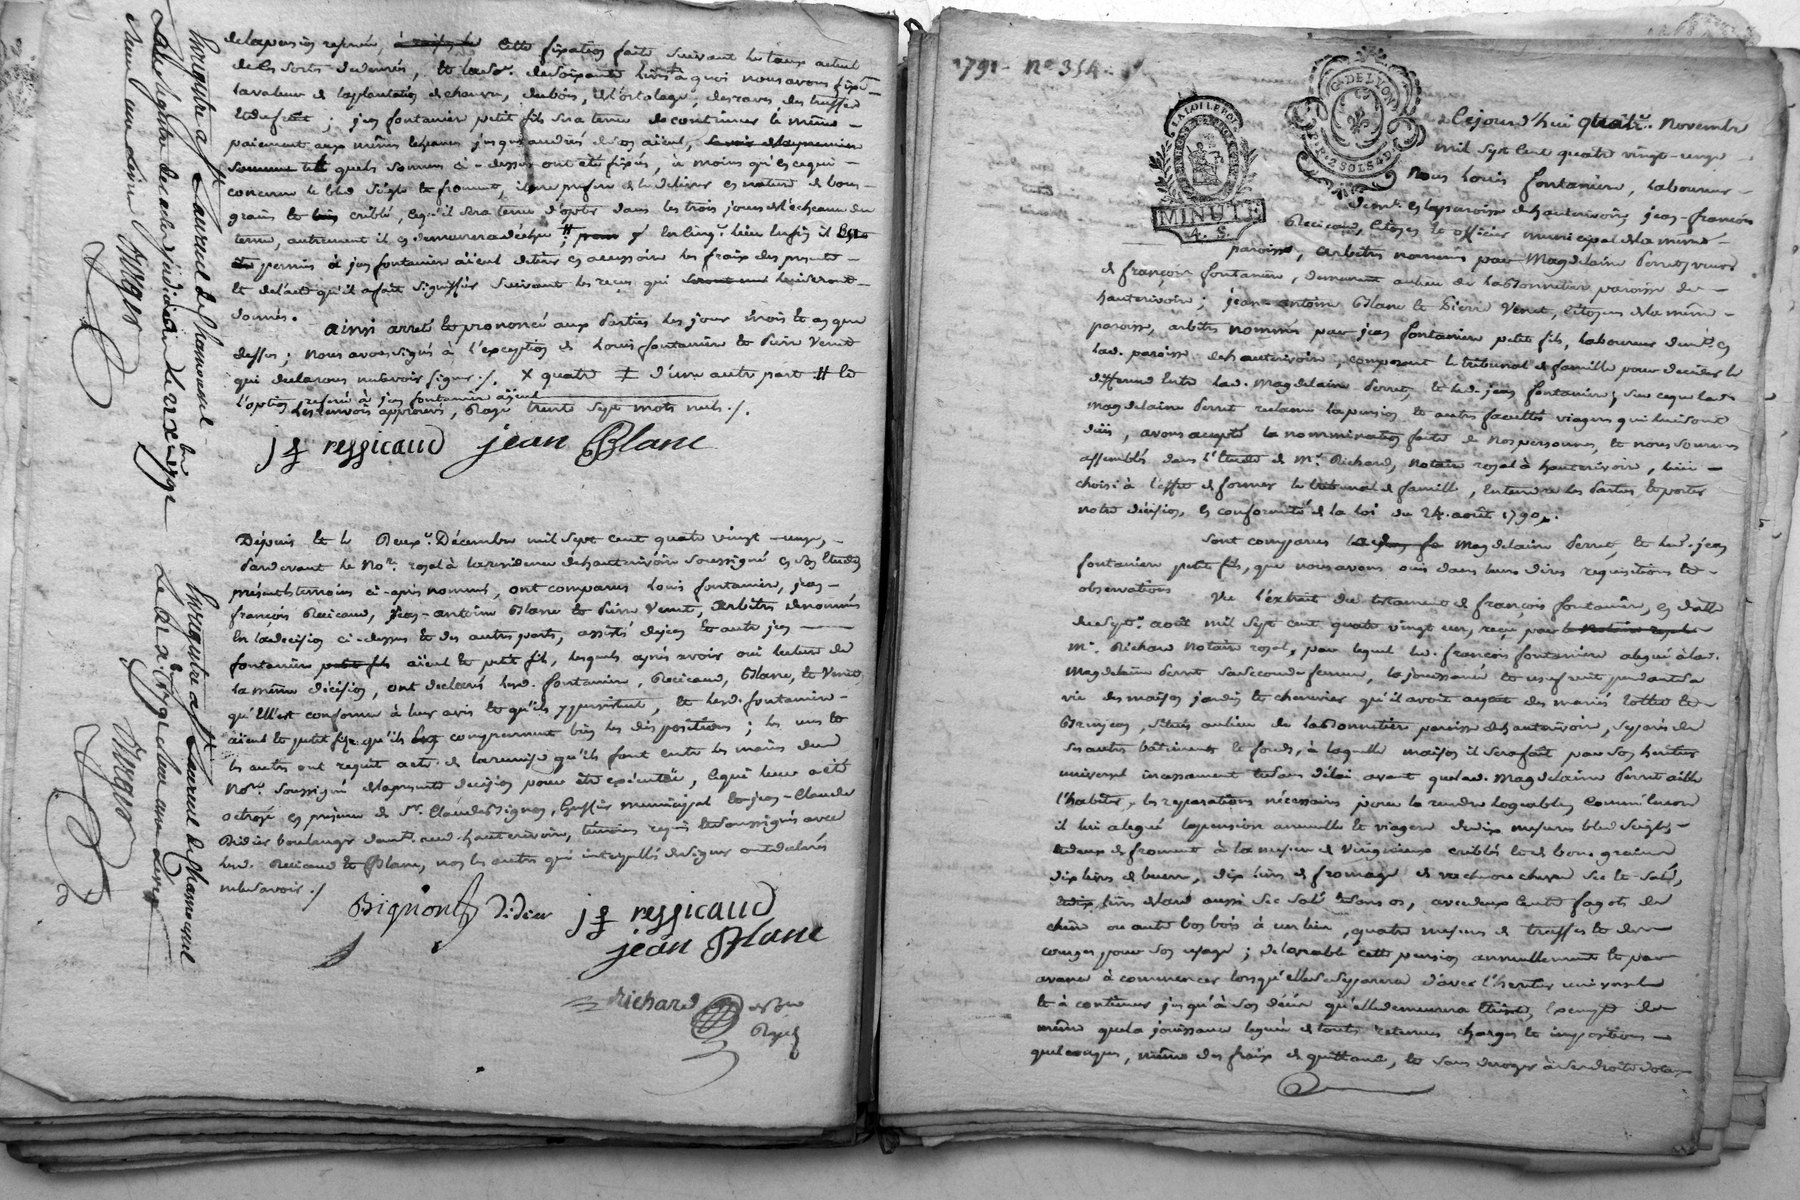 de la pension reservée, cette fixation faite suivant le taux actuel
de ces sorte de denrés, et la so.e de soixante livres à quoi nous avons fixé
la valeur de la plantation de chanvre, du bois, de l'ortolage, des raves des truffes
et du fruit ; jean fontanier petit fils sera tenu de continuer le même
paiement aux mêmes jusqu'au décés de son aïeul,
quels sommes ci-dessus ont été fixés, à moins qu'en ce qui
concerne le bled seigle et froment, il ne préfere de le délivrer en nature de bons
grains et criblé, ce qu'il sera tenu d'opter dans les trois jours de l'échéance du
terme, autrement il en demeurera déchu
permis à jean fontanier aïeul de tirer en accessoire les fraix des présentes
et de l'acte qu'il a fait signiffier suivant les reçus qui lui seront
donnés.
Ainsi arreté et prononcé aux parties les jour mois et an que
dessus ; nous avons signés à l'exception de Louis fontanier et Pierre Venet
qui declarons ne savoir signer ./. X quatre ‡ d'une autre part # et
l'option reservé à jean fontanier aïeul
les renvois approuvés, Rayé trente sept mots nuls ./.
j f ressicaud jean Blanc
Depuis et le Deux.e Décembre mil sept cent quatre vingt-onze,
Pardevant le No.re royal à la residence d'hauterivoire soussigné en son Etude
présents temoins ci-après nommés, ont comparus Louis fontanier, jean-
françois Recicaud, jean-antoine Blanc et Pierre Venet, arbitres denommés
en la decision ci-dessus et des autres parts, assistés de jean et autre jean
fontanier petit fils aïeul et petit fils, lesquels après avoir oui lecture de
la même décision, ont declarés lesd. fontanier, Recicaud, Blanc, et Venet
qu'elle est conforme à leur avis et qu'ils y persistent, et lesd. fontanier
aïeul et petit fils qu'ils comprennent bien les dispositions ; les uns et
les autres ont requit acte de la remise qu'ils font entre les mains du
No.re soussigné de la presente decision pour être exécutée, ce qui leur a été
octroyé en présence de S.r Claude Bignon, Greffier municipal et jean-Claude
Didier boulanger dem.t aud. hauterivoire, témoins requis et soussignés avec
lesd. Recicaud et Blanc, non les autres qui interpellés de signer ont declarés
ne le savoir ./
Bignon Didier j f ressicaud
jean Blanc
Richard no.re
Royal
Enregistré a S.t Laurent de Chamousset le
Verger
Enregistré a S.t Laurent de Chamousset
Le
Verger
1791 - N° 354.
LA LOI LE ROI
MINUTE
4. S.
G. DE LYON
P. P. 2 SOLS 4 D
Cejourd'hui quatr.e Novembre
mil sept cent quatre vingt-onze
Nous Louis fontanier, laboureur
dem.t en la paroisse d'hauterivoire, jean-françois
Recicaud, Citoyen et officier municipal de la même
paroisse, arbitres nommés par Magdelaine Perret, veuve
de françois fontanier, demeurant au lieu de la Bonnetier paroisse de
hauterivoire ; jean-antoine Blanc et Pierre Venet, citoyens de la même
paroisse, arbitres nommés par jean fontanier petit fils, laboureur dem.t en
lad. paroisse d'hauterivoire, composant le tribunal de famille pour decider le
differend entre lad. Magdelaine Perret, et led. jean fontanier, sur ce que lad.
Magdelaine Perret reclame la pension et autres facultés viageres qui lui sont
dües, avons accepté la nommination faite de nos personnes, et nous sommes
assemblés dans l'Etude de M.e Richard, notaire royal à hauterivoire, lieu
choisi à l'effet de former le tribunal de famille, entendre les parties, et porter
notre décision, en conformité de la loi du 24. août 1790 ./.
Sont comparus Magdelaine Perret, et led. jean
fontanier petit fils, que nous avons ouis dans leurs dires requisitions et
observations. Vu l'extrait du testament de françois fontanier, en datte
du sept.e août mil sept cent quatre vingt un, reçu par le notaire royal
M.e Richard notaire royal, par lequel led. françois fontanier a legué à lad.
Magdelaine Perret sa seconde femme, la jouissance et usufruit pendant sa
vie des maison jardin et chenevier qu'il avoit aquit des mariés et
Brinjon, situés au lieu de la Bonnetier, paroisse d'hauterivoire, separés de
ses autres bâtiments et fonds, à laquelle maison il sera fait par son heritier
universel incessament et sans délai avant que lad. Magdelaine Perret aille
l'habiter, les reparations nécessaires pour la rendre logeable, comme encore
il lui a legué la pension annuelle et viagere de dix mesures bled seigle
et deux de froment à la mesure de criblés et de bon grain
dix livres de beurre, dix livres de fromage de vache ou chevre sec et salé,
livres de lard aussi sec salé et sans os, avec deux cents fagots de
chene ou autre bon bois à un lien, quatre mesures de truffes et des
courges pour son usage ; delivrable cette pension annuellement et par
avance à commencer lorsqu'elle se separera d'avec l'heritier universel
et à continuer jusqu'à son décès qu'elle demeurera éteinte, exempte de
même que la jouissance leguée de toutes retenues charges et impositions
quelconques, même des fraix de quittance, et sans deroger à ses droits dotaux